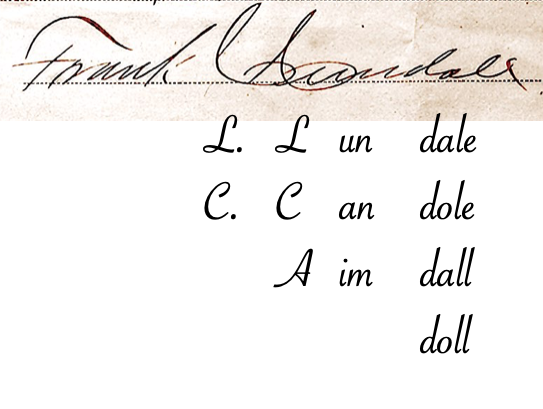 Frank
L. L un dale
C. C an dole
A im dall
doll